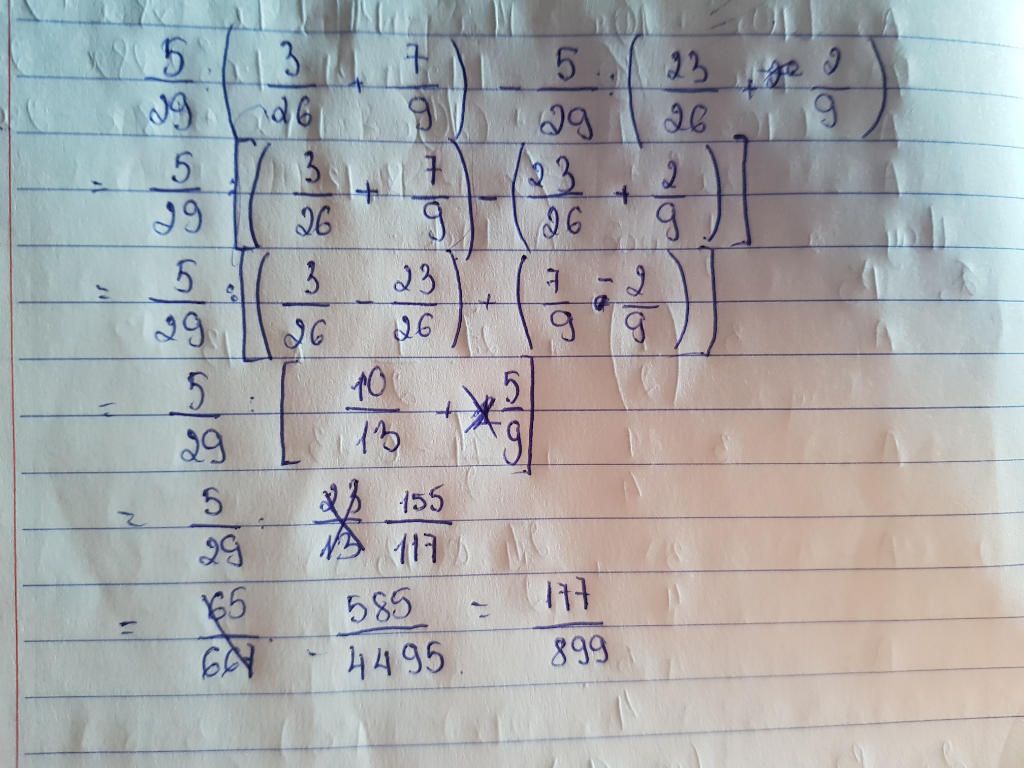 5/29 : (3/26 + 7/9) - 5/29 : (23/26 + 2/9)
= 5/29 : [(3/26 + 7/9) - (23/26 + 2/9)]
= 5/29 : [(3/26 - 23/26) + (7/9 - 2/9)]
= 5/29 : [10/13 + 5/9]
= 5/29 : 23/13 155/117
= 65/667 - 585/4495 = 177/899